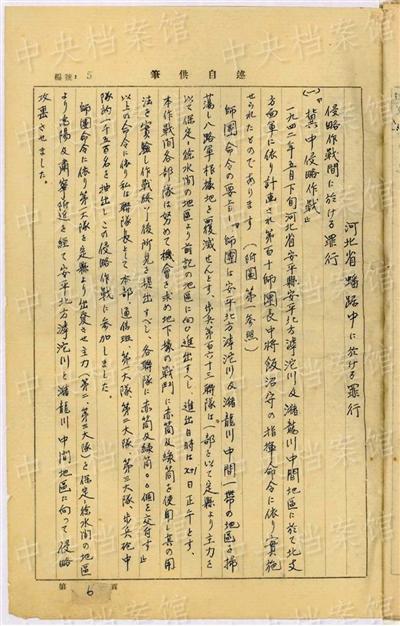 編號: 5
述自供筆
河北省蟠踞中に於ける罪行
侵略作戦間に於ける罪行
(一)「冀中侵略作戦」
一九四二年五月下旬河北省安平縣安平北方滹沱川及瀦龍川中間地區に於て北支
方面軍に依り計画され第百十師團長中將飯沼守の指揮命令に依り實施
せられたものであります (附圖第一参照)
師團命令の要旨「師團は安平北方滹沱川及瀦龍川中間一帶の地區を掃
蕩し八路軍根據地を覆滅せんとす。歩兵第百六十三聯隊は一部を以て定縣より主力を
以て保定、徐水間の地區より前記の地區に向ひ進出すべし 進出日時は 日正午とす、
本作戦間各部隊は努めて機會を求め地下壕の戦鬥に赤筒及緑筒を使用し其の用
法を實驗し作戦終了後所見を提出すべし、各聯隊に赤筒及緑筒 個を交付す」
以上の命令に依り私は聯隊長として本部通信班 第一大隊、第二大隊、第三大隊、歩兵砲中
隊約一千五百名を抽出しこの侵略作戦に参加しました。
師團命令に依り第一大隊を定縣より出發させ主力(第二、第三大隊)を保定、徐水間の地區
より高陽及肅寧附近を經て安平北方滹沱川と瀦龍川中間地區に向って侵略
攻撃させました。
第 6 頁
中央档案馆